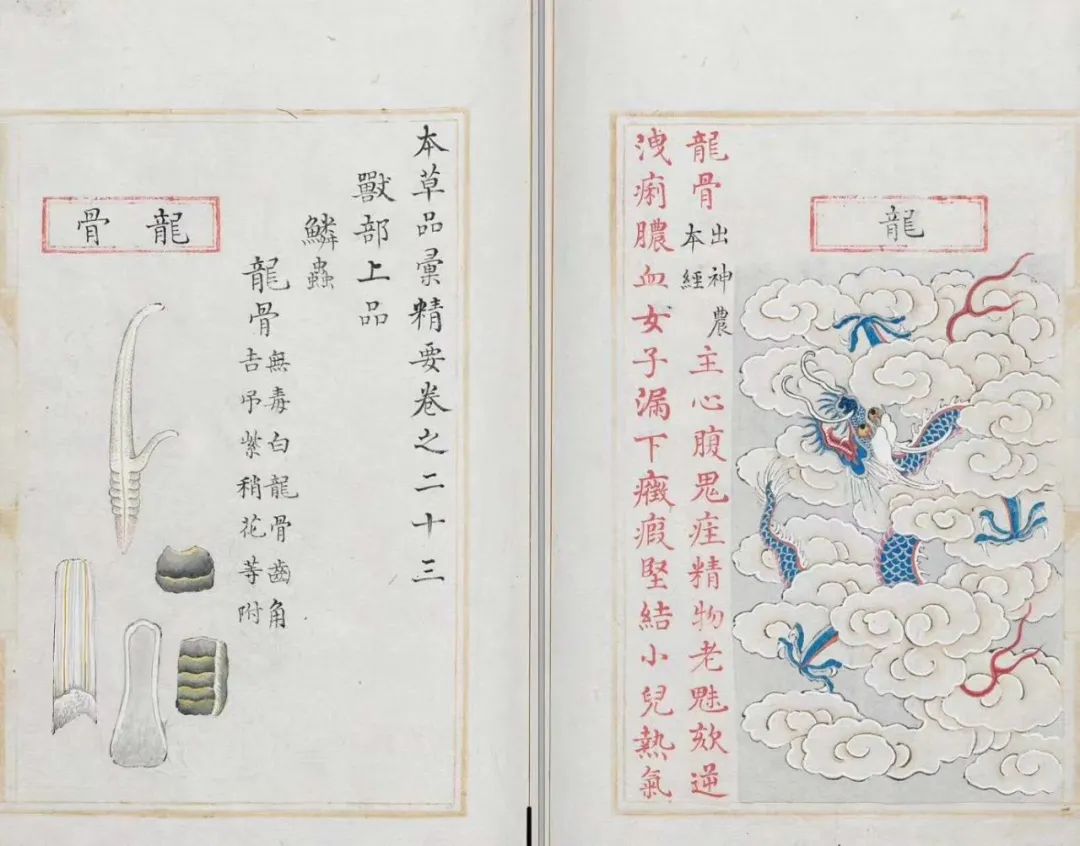 本草品彙精要卷之二十三
獸部上品
鱗蟲
龍骨
無毒白龍骨齒角
吉吊紫稍花等附
龍骨
龍
龍骨
出神農
本經
主心腹鬼疰精物老魅欬逆
洩痢膿血女子漏下癥瘕堅結小兒熱氣